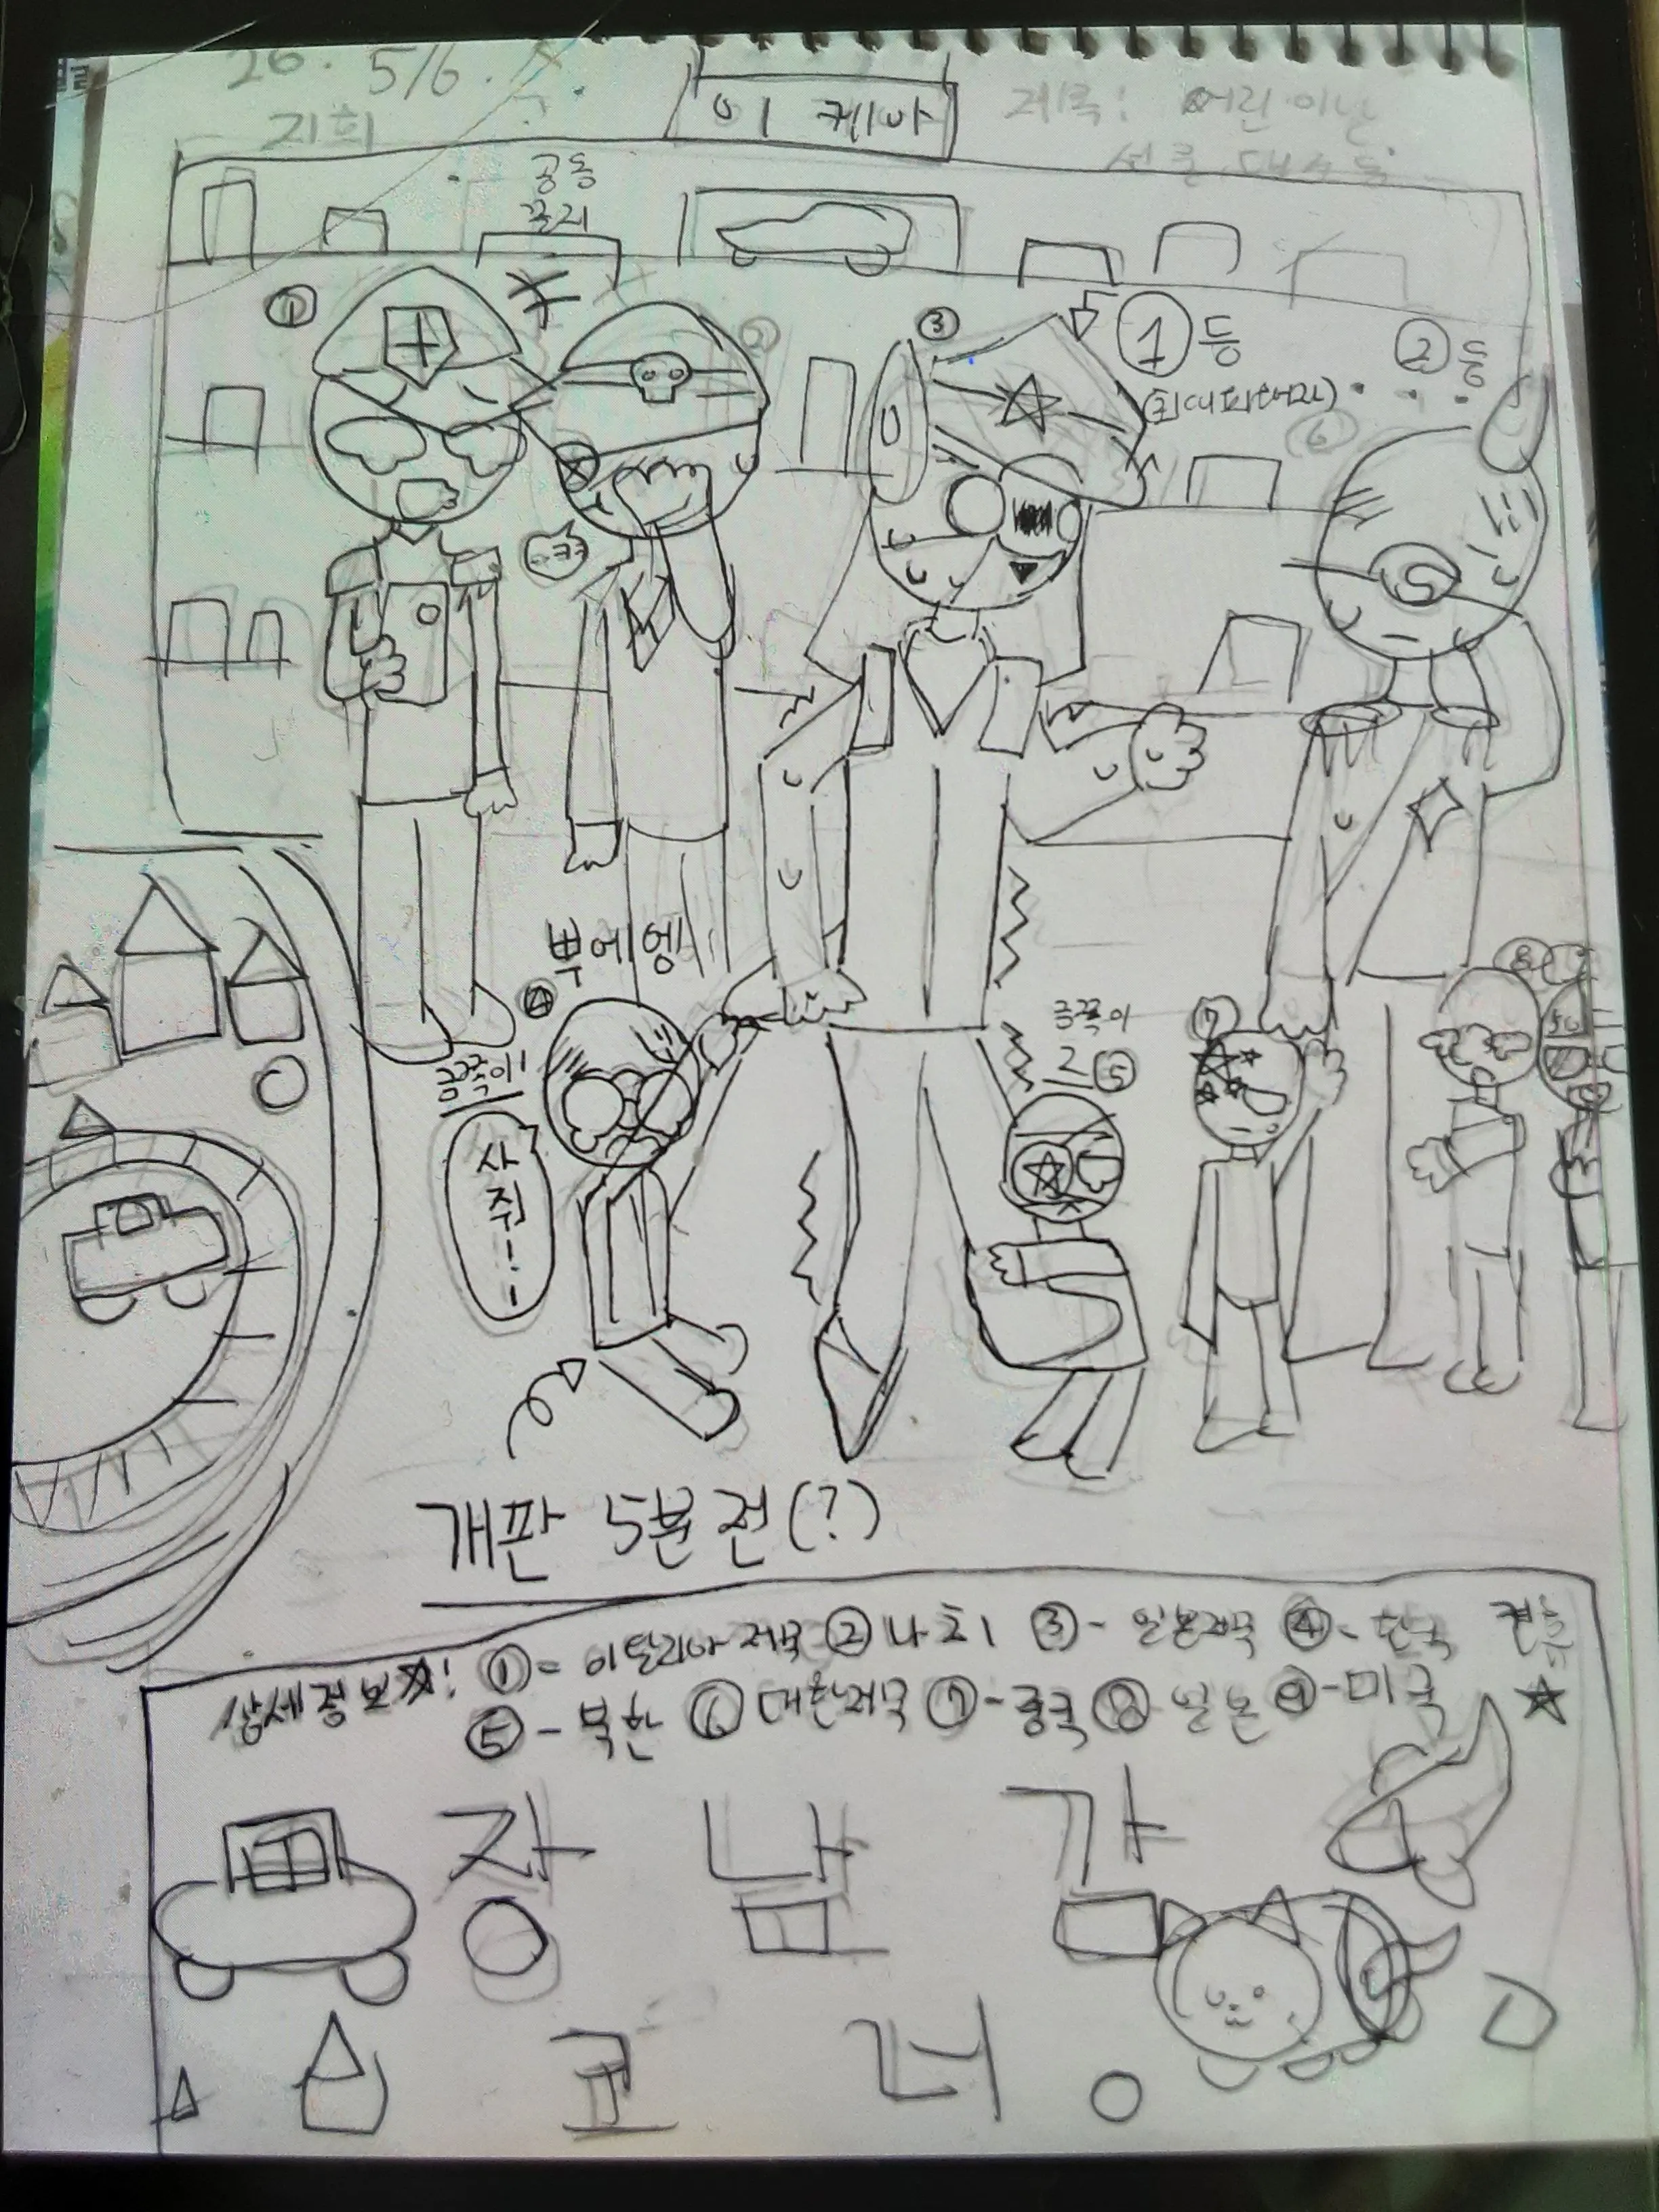 26. 5/6.
지희
이케아
제목: 어린이날
선물 대소동
공동
꼴지
①
②
③
①등
(최대피해자)
②등
⑥
..ㅋㅋ
뿌에엥
④
금쪽이1
사
줘!!
금쪽이
2 ⑤
⑦
⑧
개판 5분전(?)
상세정보☆! ①- 이탈리아 제국 ②나치 ③- 일본제국 ④- 한국
⑤- 북한 ⑥대한제국 ⑦-중국 ⑧일본 ⑨-미국
장 난 감
코 너